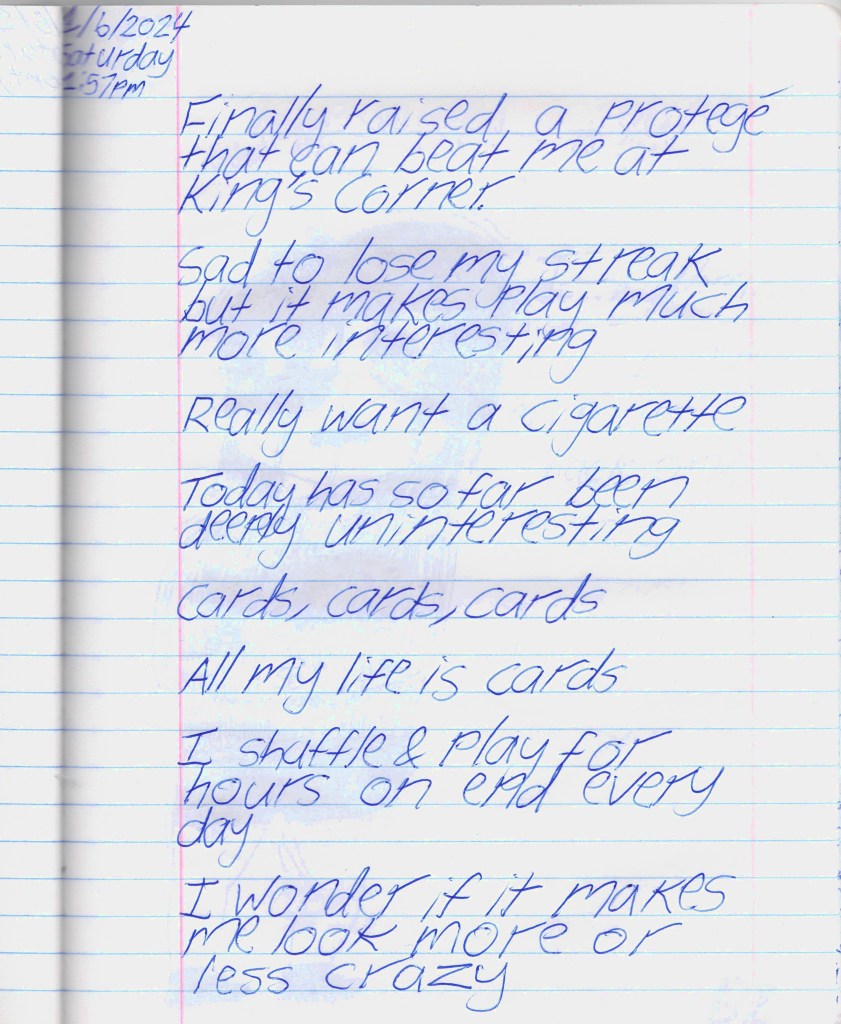 1/6/2024
Saturday
1:57pm
Finally raised a protegé
that can beat me at
King's Corner.
Sad to lose my streak
but it makes play much
more interesting
Really want a cigarette
Today has so far been
deeply uninteresting
Cards, cards, cards
All my life is cards
I shuffle & play for
hours on end every
day
I wonder if it makes
me look more or
less crazy